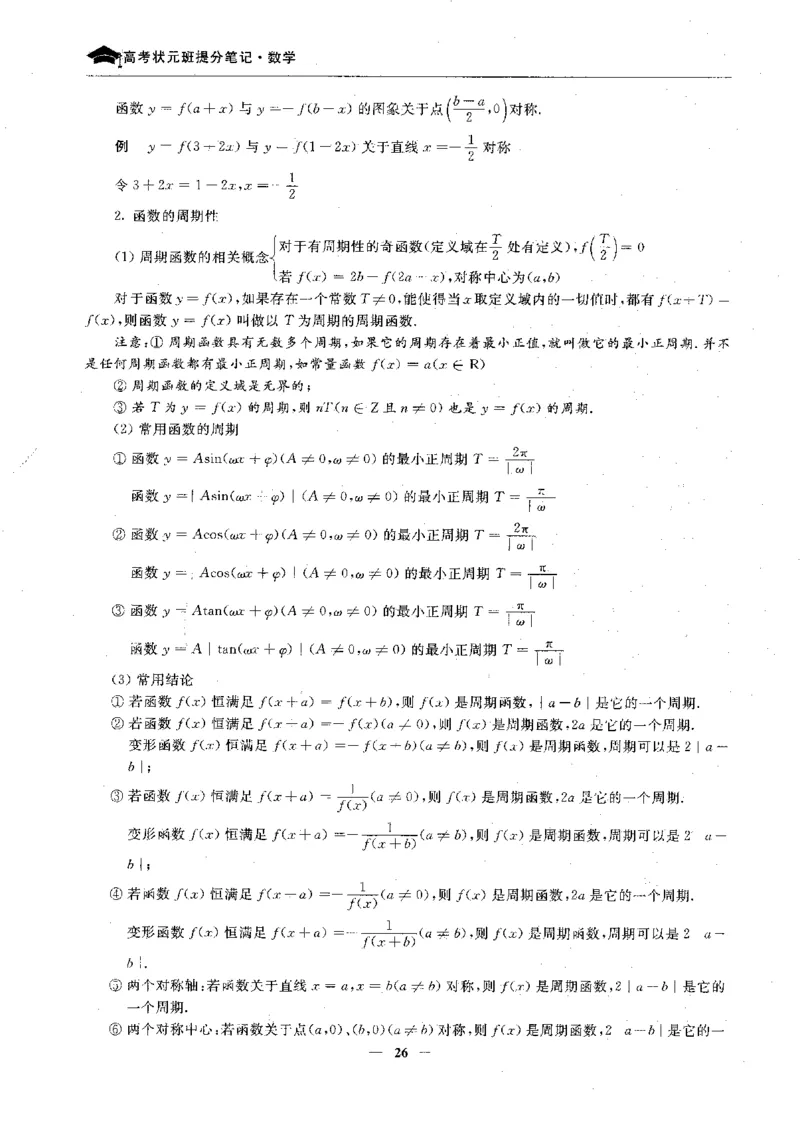 高考状元班提分笔记·数学
函数 y = f(a+x) 与 y = -f(b-x) 的图象关于点((b-a)/2,0)对称.
例 y = f(3+2x) 与 y = f(1-2x) 关于直线 x = -1/2 对称
令 3+2x = 1-2x,x = -1/2
2. 函数的周期性
(1) 周期函数的相关概念{对于有周期性的奇函数(定义域在 T/2 处有定义),f(T/2) = 0
若 f(x) = 2b-f(2a-x),对称中心为(a,b)
对于函数 y = f(x),如果存在一个常数 T≠0,能使得当 x 取定义域内的一切值时,都有 f(x+T) =
f(x),则函数 y = f(x) 叫做以 T 为周期的周期函数.
注意:① 周期函数具有无数多个周期,如果它的周期存在着最小正值,就叫做它的最小正周期.并不
是任何周期函数都有最小正周期,如常量函数 f(x) = a(x∈R)
② 周期函数的定义域是无界的;
③ 若 T 为 y = f(x) 的周期,则 nT(n∈Z 且 n≠0) 也是 y = f(x) 的周期.
(2) 常用函数的周期
① 函数 y = Asin(ωx+φ)(A≠0,ω≠0) 的最小正周期 T = 2π/|ω|
函数 y =| Asin(ωx+φ) | (A≠0,ω≠0) 的最小正周期 T = π/|ω
② 函数 y = Acos(ωx+φ)(A≠0,ω≠0) 的最小正周期 T = 2π/|ω|
函数 y =| Acos(ωx+φ) | (A≠0,ω≠0) 的最小正周期 T = π/|ω|
③ 函数 y = Atan(ωx+φ)(A≠0,ω≠0) 的最小正周期 T = π/|ω|
函数 y = A | tan(ωx+φ) | (A≠0,ω≠0) 的最小正周期 T = π/|ω|
(3) 常用结论
① 若函数 f(x) 恒满足 f(x+a) = f(x+b),则 f(x) 是周期函数,| a-b | 是它的一个周期.
② 若函数 f(x) 恒满足 f(x+a) =-f(x)(a≠0),则 f(x) 是周期函数,2a 是它的一个周期.
变形函数 f(x) 恒满足 f(x+a) =-f(x+b)(a≠b),则 f(x) 是周期函数,周期可以是 2 | a-
b |;
③ 若函数 f(x) 恒满足 f(x+a) = 1/f(x) (a≠0),则 f(x) 是周期函数,2a 是它的一个周期.
变形函数 f(x) 恒满足 f(x+a) =-1/f(x+b) (a≠b),则 f(x) 是周期函数,周期可以是 2 a-
b |;
④ 若函数 f(x) 恒满足 f(x-a) =-1/f(x) (a≠0),则 f(x) 是周期函数,2a 是它的一个周期.
变形函数 f(x) 恒满足 f(x+a) =-1/f(x+b) (a≠b),则 f(x) 是周期函数,周期可以是 2 a-
b |.
⑤ 两个对称轴:若函数关于直线 x = a,x = b(a≠b) 对称,则 f(x) 是周期函数,2 | a-b | 是它的
一个周期.
⑥ 两个对称中心:若函数关于点(a,0)、(b,0)(a≠b)对称,则 f(x) 是周期函数,2 a-b | 是它的一
— 26 —